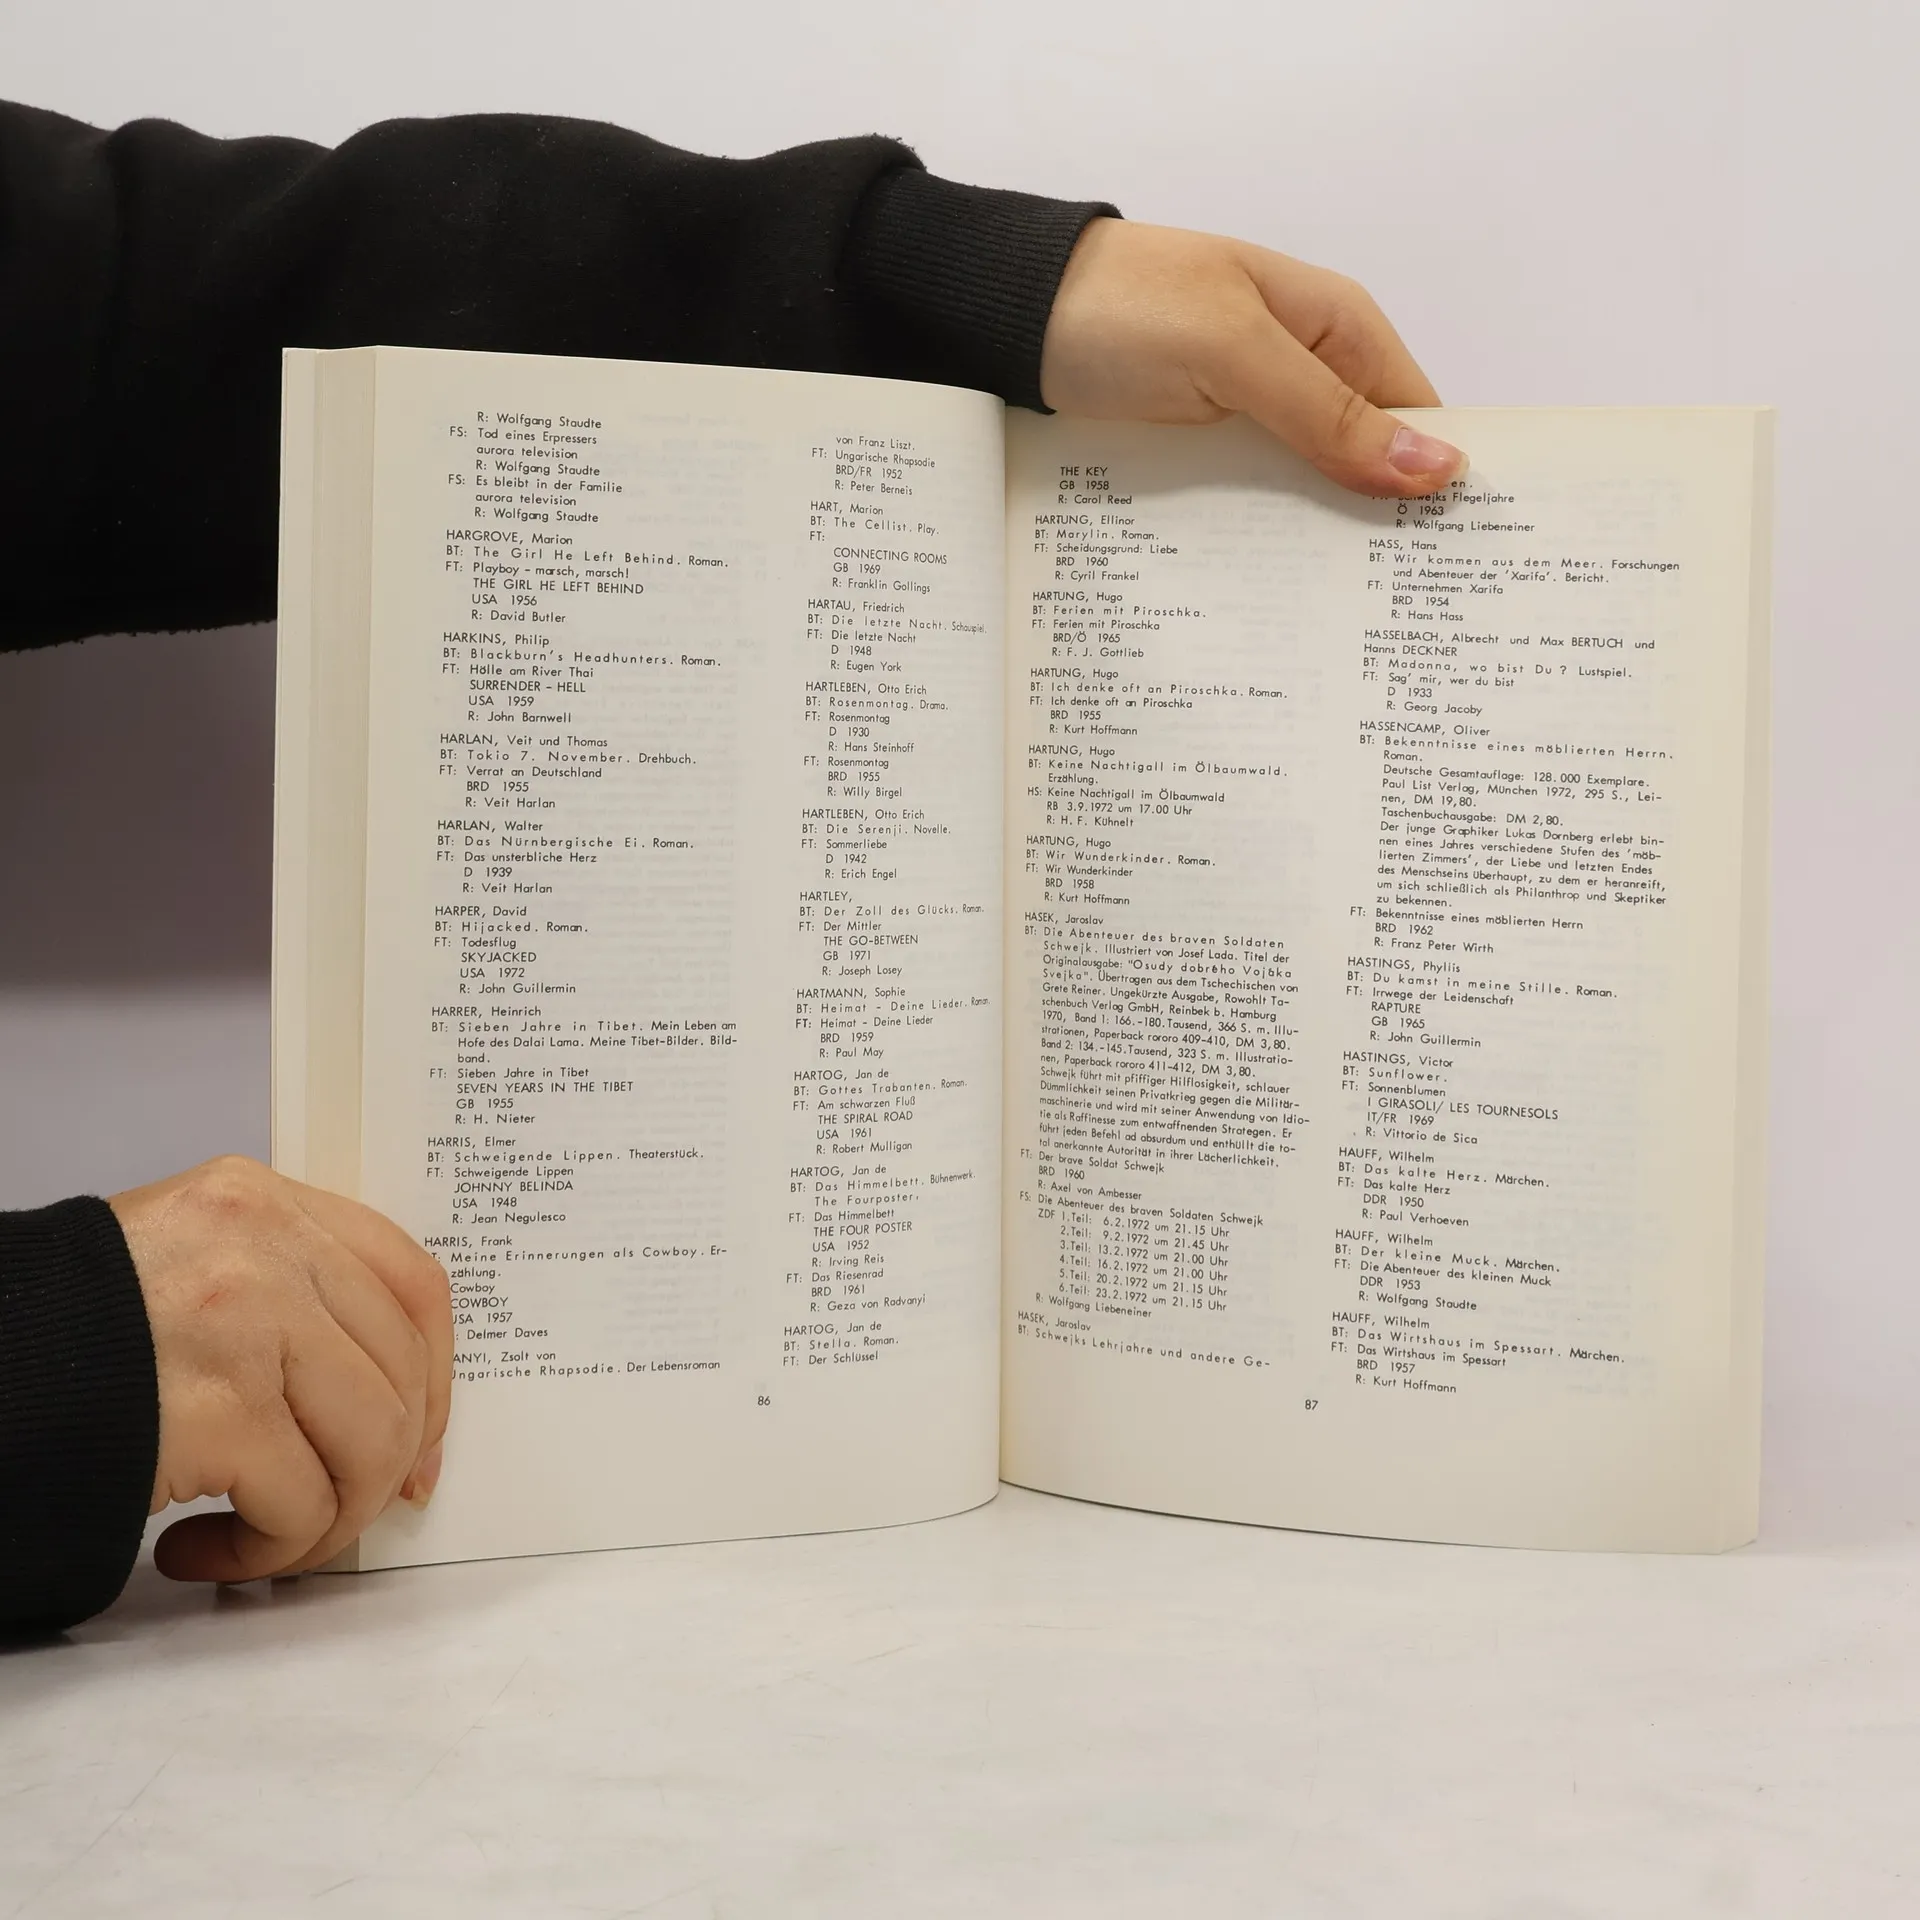 R: Wolfgang Staudte
FS: Tod eines Erpressers
aurora television
R: Wolfgang Staudte
FS: Es bleibt in der Familie
aurora television
R: Wolfgang Staudte
HARGROVE, Marion
BT: The Girl He Left Behind. Roman.
FT: Playboy - marsch, marsch!
THE GIRL HE LEFT BEHIND
USA 1956
R: David Butler
HARKINS, Philip
BT: Blackburn's Headhunters. Roman.
FT: Hölle am River Thai
SURRENDER - HELL
USA 1959
R: John Barnwell
HARLAN, Veit und Thomas
BT: Tokio 7. November. Drehbuch.
FT: Verrat an Deutschland
BRD 1955
R: Veit Harlan
HARLAN, Walter
BT: Das Nürnbergische Ei. Roman.
FT: Das unsterbliche Herz
D 1939
R: Veit Harlan
HARPER, David
BT: Hijacked. Roman.
FT: Todesflug
SKYJACKED
USA 1972
R: John Guillermin
HARRER, Heinrich
BT: Sieben Jahre in Tibet. Mein Leben am
Hofe des Dalai Lama. Meine Tibet-Bilder. Bild-
band.
FT: Sieben Jahre in Tibet
SEVEN YEARS IN THE TIBET
GB 1955
R: H. Nieter
HARRIS, Elmer
BT: Schweigende Lippen. Theaterstück.
FT: Schweigende Lippen
JOHNNY BELINDA
USA 1948
R: Jean Negulesco
HARRIS, Frank
T: Meine Erinnerungen als Cowboy. Er-
zählung.
Cowboy
COWBOY
USA 1957
: Delmer Daves
ANYI, Zsolt von
ngarische Rhapsodie. Der Lebensroman
86
von Franz Liszt.
FT: Ungarische Rhapsodie
BRD/FR 1952
R: Peter Berneis
HART, Marion
BT: The Cellist. Play.
FT:
CONNECTING ROOMS
GB 1969
R: Franklin Gollings
HARTAU, Friedrich
BT: Die letzte Nacht. Schauspiel.
FT: Die letzte Nacht
D 1948
R: Eugen York
HARTLEBEN, Otto Erich
BT: Rosenmontag. Drama.
FT: Rosenmontag
D 1930
R: Hans Steinhoff
FT: Rosenmontag
BRD 1955
R: Willy Birgel
HARTLEBEN, Otto Erich
BT: Die Serenji. Novelle.
FT: Sommerliebe
D 1942
R: Erich Engel
HARTLEY,
BT: Der Zoll des Glücks. Roman.
FT: Der Mittler
THE GO-BETWEEN
GB 1971
R: Joseph Losey
HARTMANN, Sophie
BT: Heimat - Deine Lieder. Roman.
FT: Heimat - Deine Lieder
BRD 1959
R: Paul May
HARTOG, Jan de
BT: Gottes Trabanten. Roman.
FT: Am schwarzen Fluß
THE SPIRAL ROAD
USA 1961
R: Robert Mulligan
HARTOG, Jan de
BT: Das Himmelbett. Bühnenwerk.
The Fourposter.
FT: Das Himmelbett
THE FOUR POSTER
USA 1952
R: Irving Reis
FT: Das Riesenrad
BRD 1961
R: Geza von Radvanyi
HARTOG, Jan de
BT: Stella. Roman.
FT: Der Schlüssel
THE KEY
GB 1958
R: Carol Reed
HARTUNG, Ellinor
BT: Marylin. Roman.
FT: Scheidungsgrund: Liebe
BRD 1960
R: Cyril Frankel
HARTUNG, Hugo
BT: Ferien mit Piroschka.
FT: Ferien mit Piroschka
BRD/Ö 1965
R: F. J. Gottlieb
HARTUNG, Hugo
BT: Ich denke oft an Piroschka. Roman.
FT: Ich denke oft an Piroschka
BRD 1955
R: Kurt Hoffmann
HARTUNG, Hugo
BT: Keine Nachtigall im Ölbaumwald.
Erzählung.
HS: Keine Nachtigall im Ölbaumwald
RB 3.9.1972 um 17.00 Uhr
R: H. F. Kühnelt
HARTUNG, Hugo
BT: Wir Wunderkinder. Roman.
FT: Wir Wunderkinder
BRD 1958
R: Kurt Hoffmann
HASEK, Jaroslav
BT: Die Abenteuer des braven Soldaten
Schwejk. Illustriert von Josef Lada. Titel der
Originalausgabe: "Osudy dobrého Vojáka
Svejka". Übertragen aus dem Tschechischen von
Grete Reiner. Ungekürzte Ausgabe, Rowohlt Ta-
schenbuch Verlag GmbH, Reinbek b. Hamburg
1970, Band 1: 166.-180.Tausend, 366 S. m. Illu-
strationen, Paperback rororo 409-410, DM 3,80.
Band 2: 134.-145.Tausend, 323 S. m. Illustratio-
nen, Paperback rororo 411-412, DM 3,80.
Schwejk führt mit pfiffiger Hilflosigkeit, schlauer
Dümmlichkeit seinen Privatkrieg gegen die Militär-
maschinerie und wird mit seiner Anwendung von Idio-
tie als Raffinesse zum entwaffnenden Strategen. Er
führt jeden Befehl ad absurdum und enthüllt die to-
tal anerkannte Autorität in ihrer Lächerlichkeit.
FT: Der brave Soldat Schwejk
BRD 1960
R: Axel von Ambesser
FS: Die Abenteuer des braven Soldaten Schwejk
ZDF 1.Teil: 6.2.1972 um 21.15 Uhr
2.Teil: 9.2.1972 um 21.45 Uhr
3.Teil: 13.2.1972 um 21.00 Uhr
4.Teil: 16.2.1972 um 21.00 Uhr
5.Teil: 20.2.1972 um 21.15 Uhr
6.Teil: 23.2.1972 um 21.15 Uhr
R: Wolfgang Liebeneiner
HASEK, Jaroslav
BT: Schwejks Lehrjahre und andere Ge-
87
en.
Schwejks Flegeljahre
Ö 1963
R: Wolfgang Liebeneiner
HASS, Hans
BT: Wir kommen aus dem Meer. Forschungen
und Abenteuer der 'Xarifa'. Bericht.
FT: Unternehmen Xarifa
BRD 1954
R: Hans Hass
HASSELBACH, Albrecht und Max BERTUCH und
Hanns DECKNER
BT: Madonna, wo bist Du ? Lustspiel.
FT: Sag' mir, wer du bist
D 1933
R: Georg Jacoby
HASSENCAMP, Oliver
BT: Bekenntnisse eines möblierten Herrn.
Roman.
Deutsche Gesamtauflage: 128.000 Exemplare.
Paul List Verlag, München 1972, 295 S., Lei-
nen, DM 19,80.
Taschenbuchausgabe: DM 2,80.
Der junge Graphiker Lukas Dornberg erlebt bin-
nen eines Jahres verschiedene Stufen des 'möb-
lierten Zimmers', der Liebe und letzten Endes
des Menschseins überhaupt, zu dem er heranreift,
um sich schließlich als Philanthrop und Skeptiker
zu bekennen.
FT: Bekenntnisse eines möblierten Herrn
BRD 1962
R: Franz Peter Wirth
HASTINGS, Phyllis
BT: Du kamst in meine Stille. Roman.
FT: Irrwege der Leidenschaft
RAPTURE
GB 1965
R: John Guillermin
HASTINGS, Victor
BT: Sunflower.
FT: Sonnenblumen
I GIRASOLI/ LES TOURNESOLS
IT/FR 1969
R: Vittorio de Sica
HAUFF, Wilhelm
BT: Das kalte Herz. Märchen.
FT: Das kalte Herz
DDR 1950
R: Paul Verhoeven
HAUFF, Wilhelm
BT: Der kleine Muck. Märchen.
FT: Die Abenteuer des kleinen Muck
DDR 1953
R: Wolfgang Staudte
HAUFF, Wilhelm
BT: Das Wirtshaus im Spessart. Märchen.
FT: Das Wirtshaus im Spessart
BRD 1957
R: Kurt Hoffmann